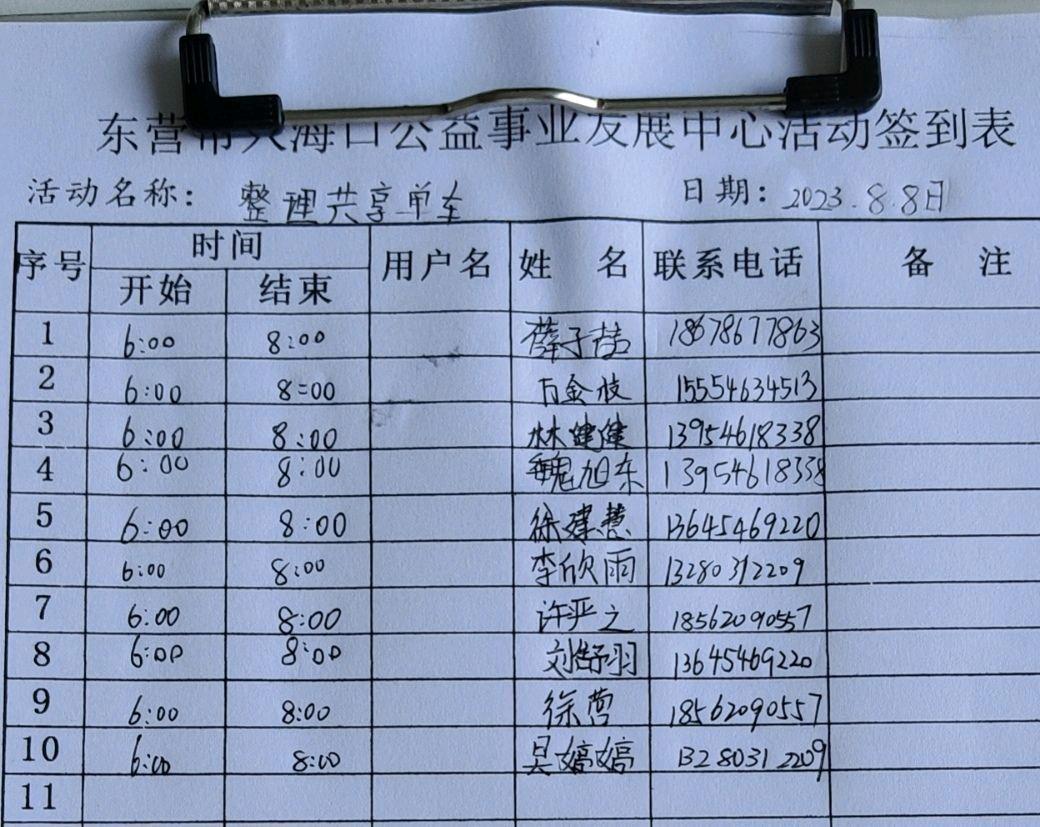 东营市入海口公益事业发展中心活动签到表
活动名称： 整理共享单车 日期：2023.8.8日
序号 时间 用户名 姓 名 联系电话 备 注
开始 结束
1 6:00 8:00 薛子喆 18678677863
2 6:00 8:00 万金枝 15554634513
3 6:00 8:00 林健健 13954618338
4 6:00 8:00 魏旭东 13954618338
5 6:00 8:00 徐建慧 13645469220
6 6:00 8:00 李欣雨 13280312209
7 6:00 8:00 许严之 18562090557
8 6:00 8:00 刘舒羽 13645469220
9 6:00 8:00 徐营 18562090557
10 6:00 8:00 吴嫡嫡 13280312209
11